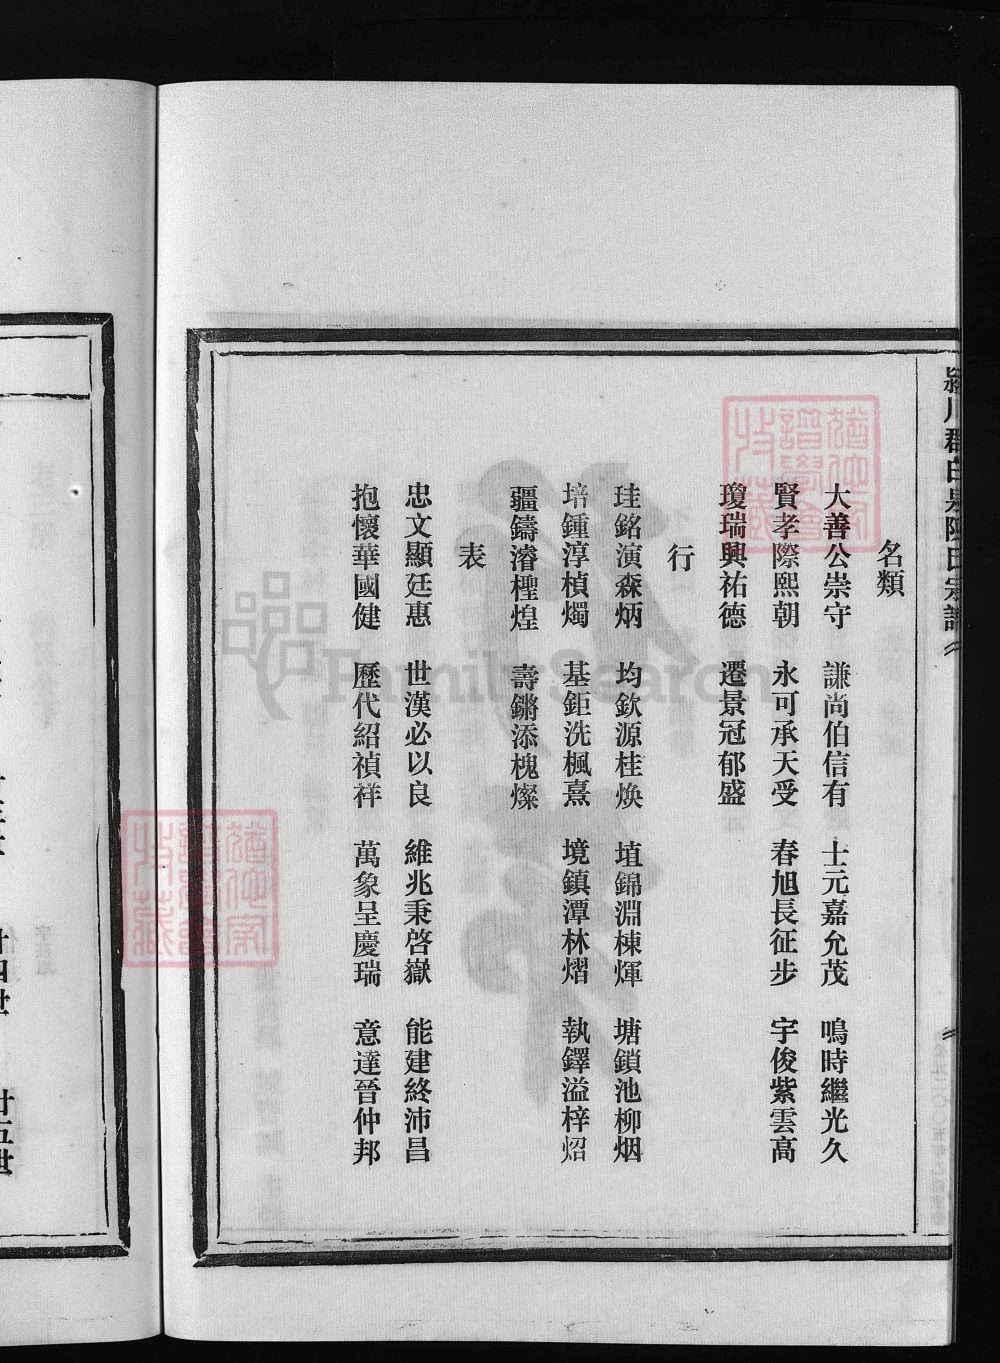 名類
大善公崇守 謙尚伯信有 士元嘉允茂 鳴時繼光久
賢孝際熙朝 永可承天受 春旭長征步 宇俊紫雲高
瓊瑞興祐德 遷景冠郁盛
行
珪銘演森炳 均欽源桂煥 埴錦淵棟煇 塘鎖池柳烟
培鍾淳楨燭 基鉅洗楓熹 境鎮潭林熠 執鐸溢梓炤
疆鑄濬檉煌 壽鏘添槐燦
表
忠文顯廷惠 世漢必以良 維兆秉啓嶽 能建終沛昌
抱懷華國健 歷代紹禎祥 萬象呈慶瑞 意達晉仲邦
廿四世
廿五世
FamilySearch